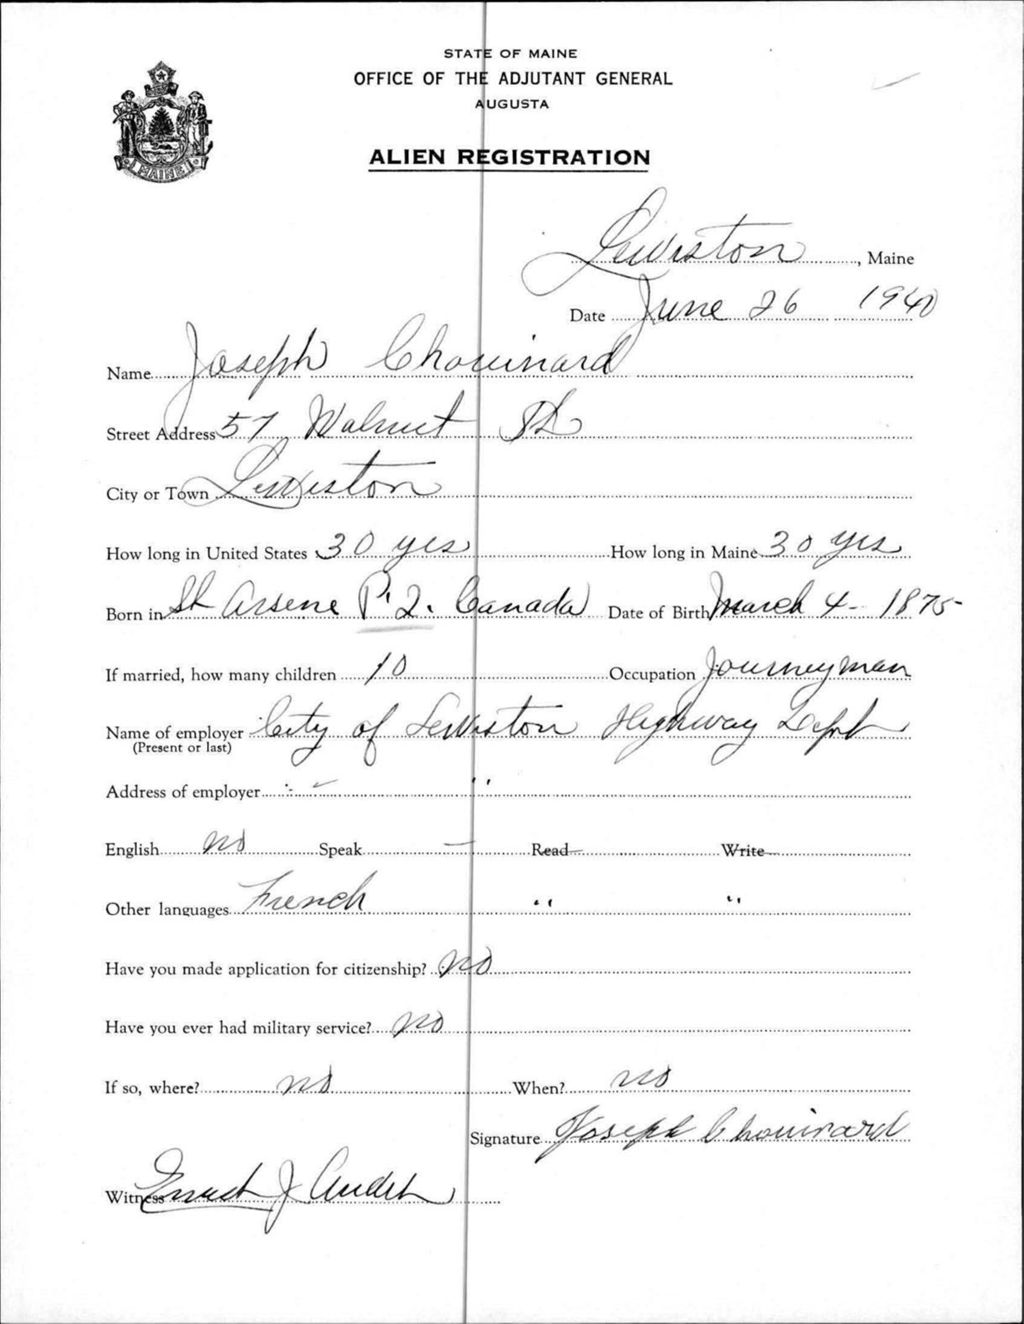 STATE OF MAINE
OFFICE OF THE ADJUTANT GENERAL
AUGUSTA
ALIEN REGISTRATION
MAINE
Lewiston, Maine
Date June 26 1940
Name Joseph Chouinard
Street Address 57 Walnut St
City or Town Lewiston
How long in United States 30 yrs How long in Maine 30 yrs
Born in St Arsene P.Q. Canada Date of Birth March 4 - 1875-
If married, how many children 10 Occupation Journeyman
Name of employer City of Lewiston Highway Dept
(Present or last)
Address of employer " "
English no Speak - Read Write
Other languages French " "
Have you made application for citizenship? no
Have you ever had military service? no
If so, where? no When? no
Signature Joseph Chouinard
Witness Ernest J Audet